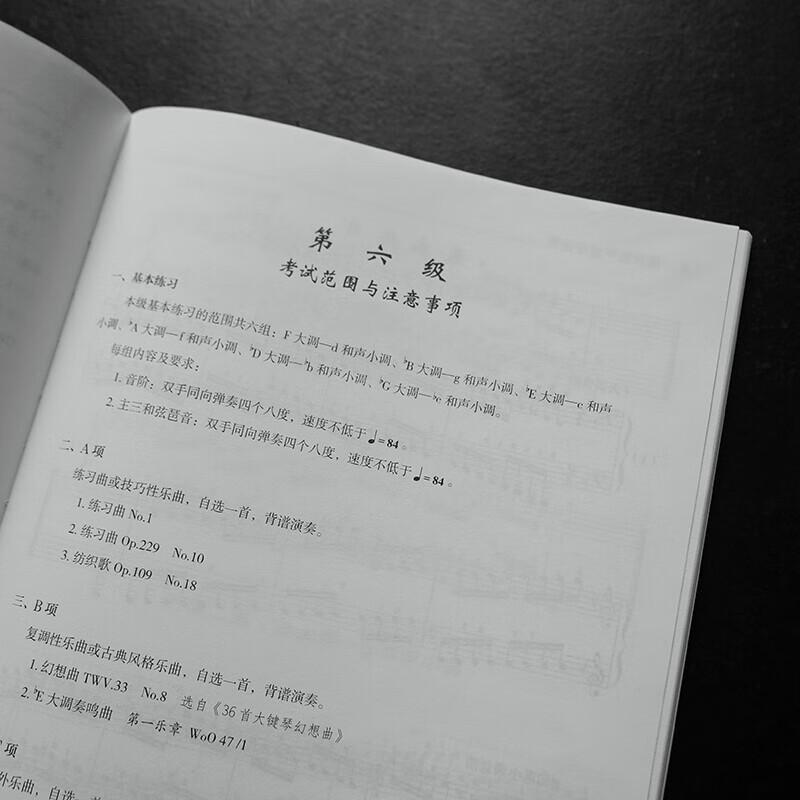 第六级
考试范围与注意事项
一、基本练习
本级基本练习的范围共六组：F大调—d和声小调、♭B大调—g和声小调、♭E大调—c和声
小调、♭A大调—f和声小调、♭D大调—♭b和声小调、♭G大调—♭e和声小调。
每组内容及要求：
1. 音阶：双手同向弹奏四个八度，速度不低于♩=84。
2. 主三和弦琶音：双手同向弹奏四个八度，速度不低于♩=84。
二、A项
练习曲或技巧性乐曲，自选一首，背谱演奏。
1. 练习曲 No.1
2. 练习曲 Op.229 No.10
3. 纺织歌 Op.109 No.18
三、B项
复调性乐曲或古典风格乐曲，自选一首，背谱演奏。
1. 幻想曲 TWV.33 No.8 选自《36首大键琴幻想曲》
2. ♭E大调奏鸣曲 第一乐章 WoO 47/1
项
外乐曲，自选一